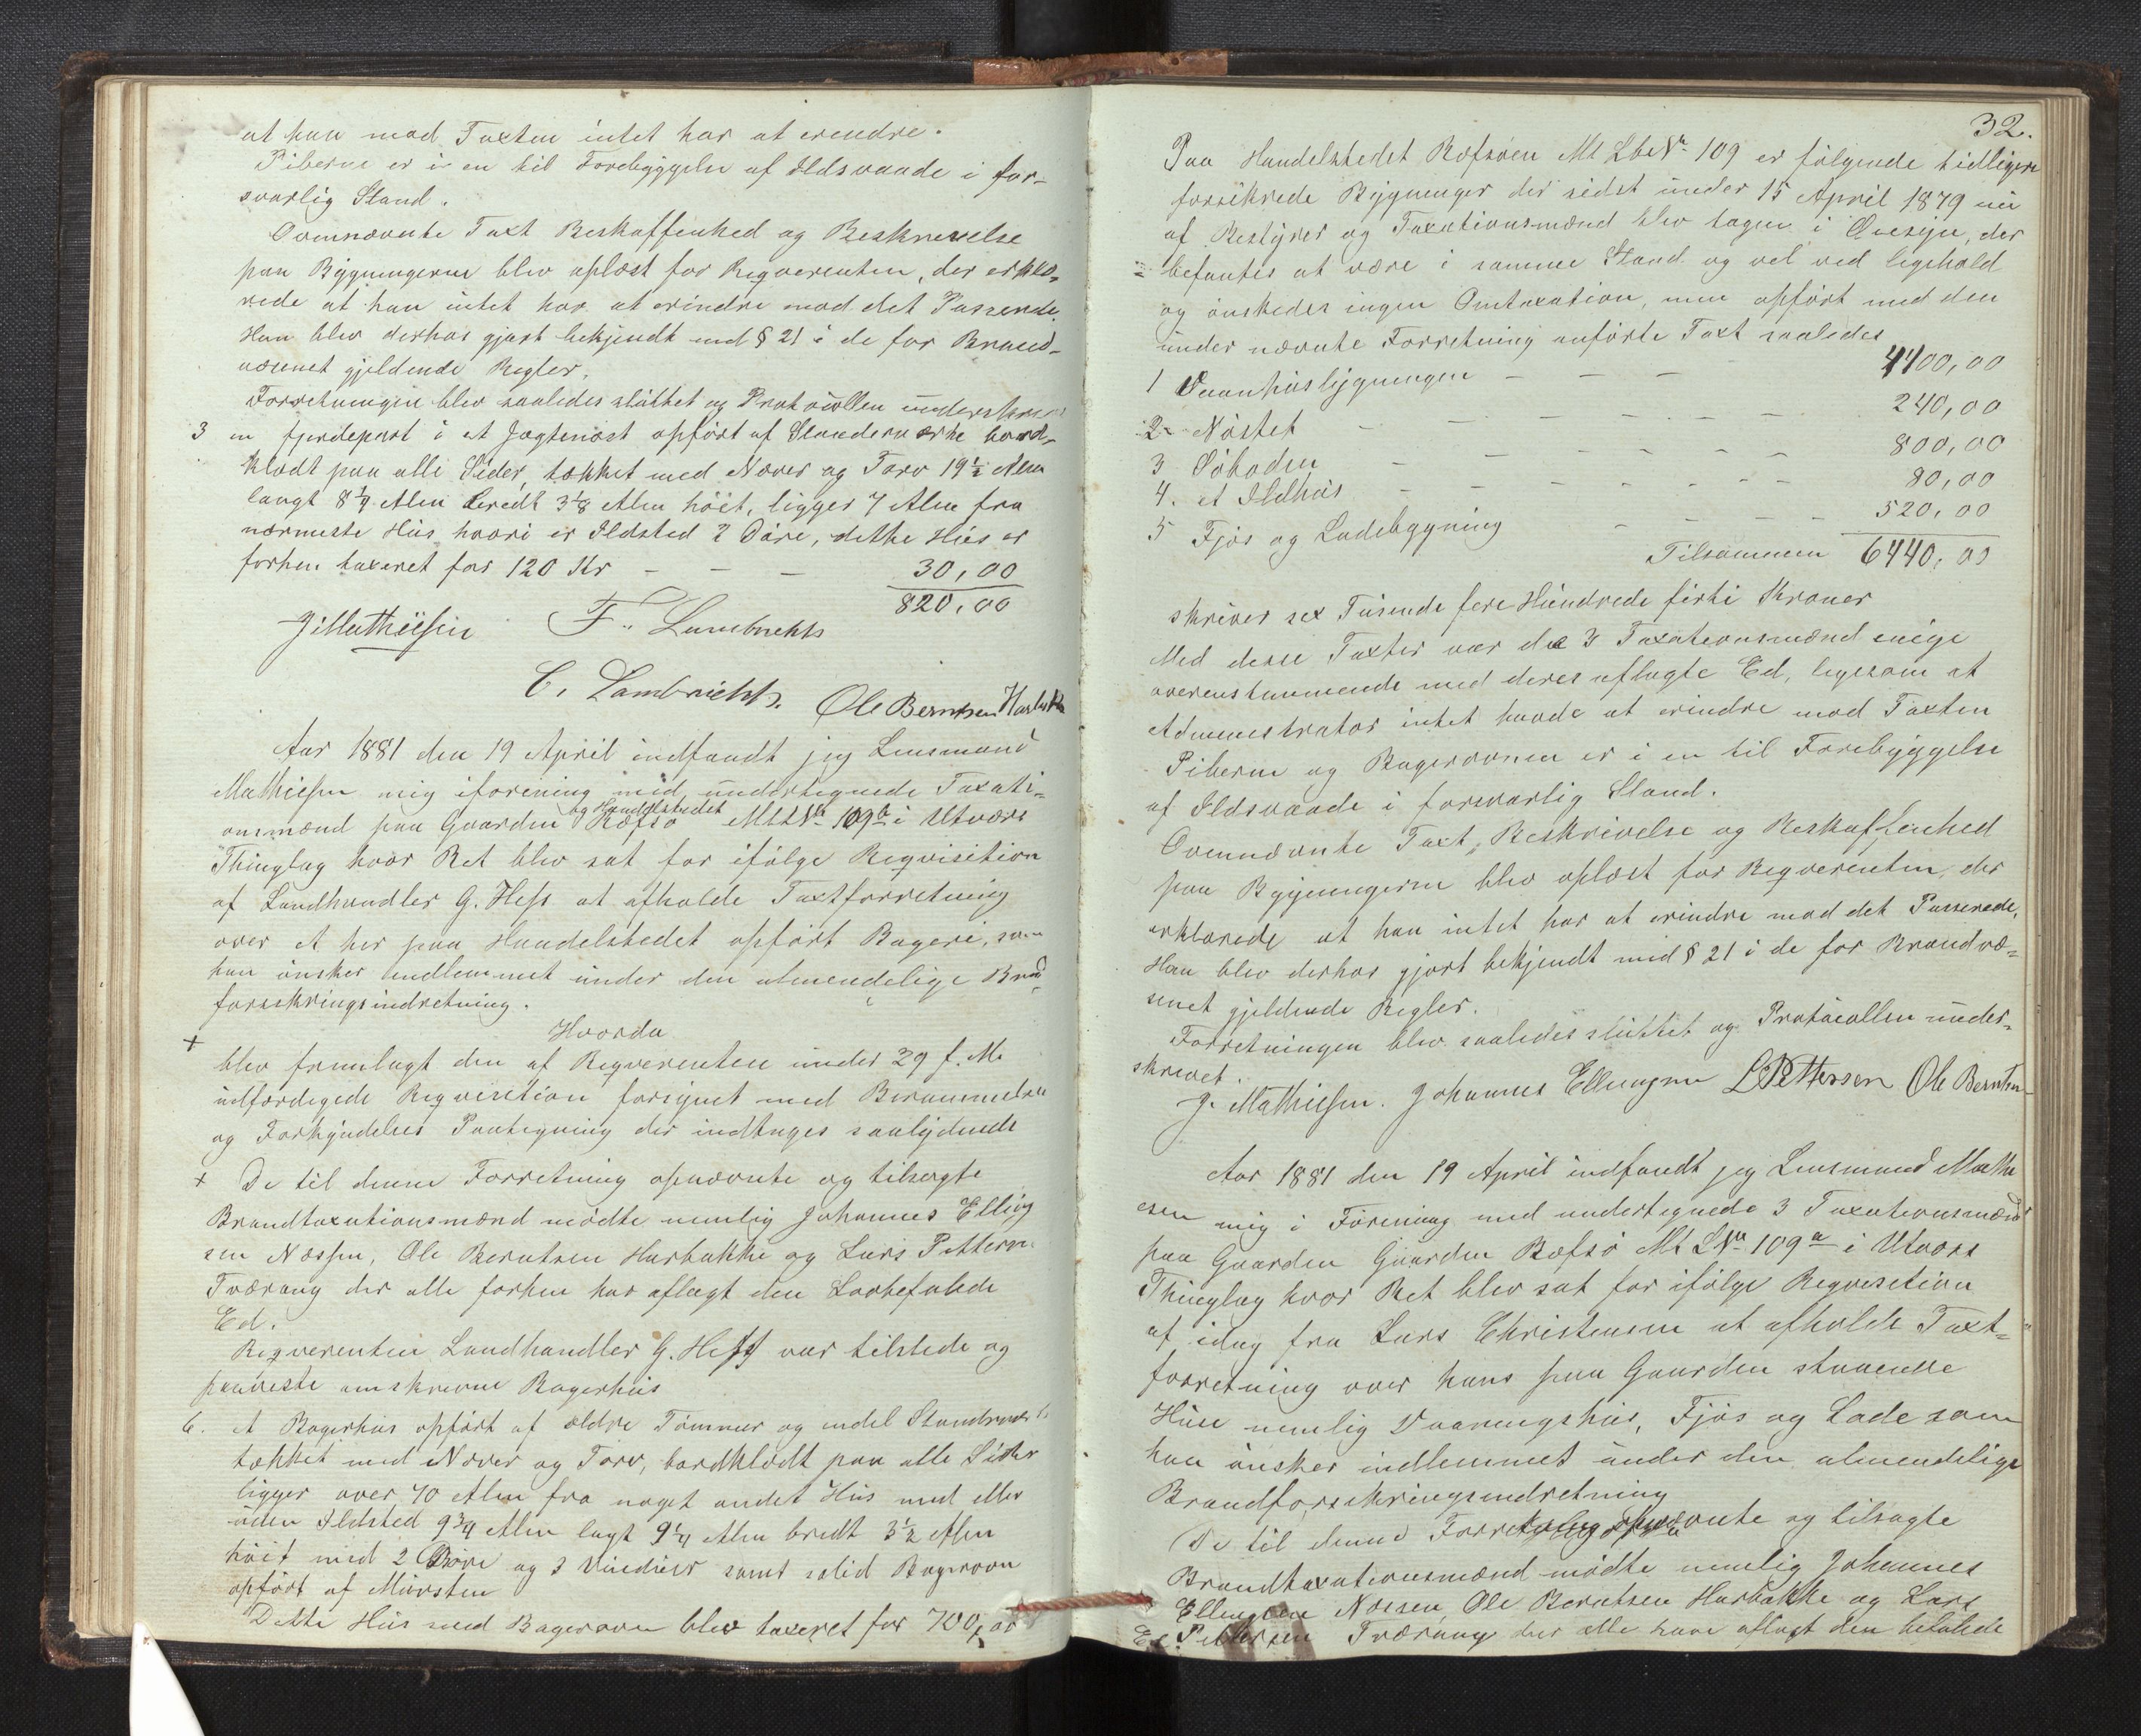 at han mod Taxten intet har at erindre.
Piberne er i en til Forebyggelse af Ildsvaade i for-
svarlig Stand.
Ovennævnte Taxt Beskaffenhed og Beskrivelse
paa Bygningerne blev oplæst for Reqverenten, der erklæ-
rede at han intet har at erindre mod det Passerede.
Han blev derhos gjort bekjendt med § 21 i de for Brand-
væsenet gjeldende Regler.
Forretningen blev saaledes sluttet og Protocollen underskrevet
3 en fjerdepart i et Jægtenøst opført af Standerværke bord-
klædt paa alle Sider, tækket med Næver og Torv 19½ Alen
langt 8¼ Alen bredt 3⅛ Alen höit, ligger 7 Alen fra
nærmeste Hus hvori er Ildsted 2 Döre, dette Hus er
forhen taxeret for 120 Kr - - - 30,00
820,00
J Mathiesen F. Lambrechts
C. Lambrechts. Ole Berntsen Harbakke
Aar 1881 den 19 April indfandt jeg Lensmand
Mathiesen mig iforening med undertegnede Taxati-
og Handelstedet
onsmænd paa Gaarden Ræfsø Mt L No 109 b i Utværs
Thinglag hvor Ret blev sat for ifölge Reqvisition
af Landhandler G. Hess at afholde Taxtforretning
over et her paa Handelstedet opfört Bageri, som
han önsker indlemmet under den almendelige Brand-
forsikringsindretning.
Hvorda
+
blev fremlagt den af Reqverenten under 29 f. M.
udfærdigede Reqvisition forsynet med Berammelses
og Forkyndelses Paategning der indtages saalydende
+ De til denne Forretning opnævnte og tilsagte
Brandtaxationsmænd mödte nemlig Johannes Elling
sen Næssen, Ole Berntsen Harbakke og Lars Pettersen
Tværang der alle forhen har aflagt den Lovbefalede
Ed.
Reqverenten Landhandler G. Hess var tilstede og
paaviste omskrevne Bagerhus
6. et Bagerhus opfört af ældre Tömmer og endel Standerværk
tækket med Næver og Torv, bordklædt paa alle Sider
ligger over 70 Alen fra noget andet Hus med eller
uden Ildsted 9¾ Alen lagt 9¼ Alen bredt 3½ Alen
höit med 2 Döre og 3 Vinduer samt solid Bagerovn
opfört af Mursten
Dette Hus med Bagerovn blev taxeret for 700,00
32.
Paa Handelstedet Ræfsøen Mt Lbe No 109 er fölgende tidligere
forsikrede Bygninger der sidst under 15 April 1879 nu
af Bestyrer og Taxationsmænd blev tagen i Öiesyn, der
befantes at være i samme Stand og vel ved ligehold
og önskedes ingen Omtaxation, men opfört med den
under nævnte Forretning anförte Taxt saaledes
1 Vaanhusbygningen - - - 4400,00
2 Nöstet - - - - - 240,00
3 Söboden - - - - - 800,00
4. et Ildhus - - - - - 80,00
5 Fjös og Ladebygning - - - - 520,00
Tilsammen 6440,00
skriver sex Tusende fere Hundrede firti Kroner
Med desse Taxter var de 3 Taxationsmænd enige
overenstemmende med deres aflagte Ed, ligesom at
Administrator intet havde at erindre mod Taxten
Piberne og Bagerovnen er i en til Forebyggelse
af Ildsvaade i forsvarlig Stand.
Ovennævnte Taxt, Beskrivelse og Beskaffenhed
paa Bygningerne blev oplæst for Reqverenten, der
erklærede at han intet har at erindre mod det Passerede,
Han blev derhos gjort bekjendt med § 21 i de for Brandvæ-
senet gjeldende Regler.
Forretningen blev saaledes sluttet og Protocollen under-
skrevet.
J. Mathiesen. Johannes Ellingsen L Pettersen Ole Berntsen
Aar 1881 den 19 April indfandt jeg Lensmand Mathi
esen mig i Forening med undertegnede 3 Taxationsmænd
paa Gaarden Gaarden Ræfsö Mt L No 109 a i Utværs
Thinglag hvor Ret blev sat for ifölge Reqvesetion
af idag fra Lars Christensen at afholde Taxt-
forretning over hans paa Gaarden staaende
Huse nemlig Vaaningshus, Fjös og Lade som
han önsker indlemmet under den almendelige
Brandforsikringsindretning
De til denne Forretning opnævnte og tilsagte
Brandtaxationsmænd mödte nemlig Johannes
Ellingsen Næssen, Ole Berntsen Harbakke og Lars
Pettersen Tværaang der alle have aflagt den befalede
Ed.